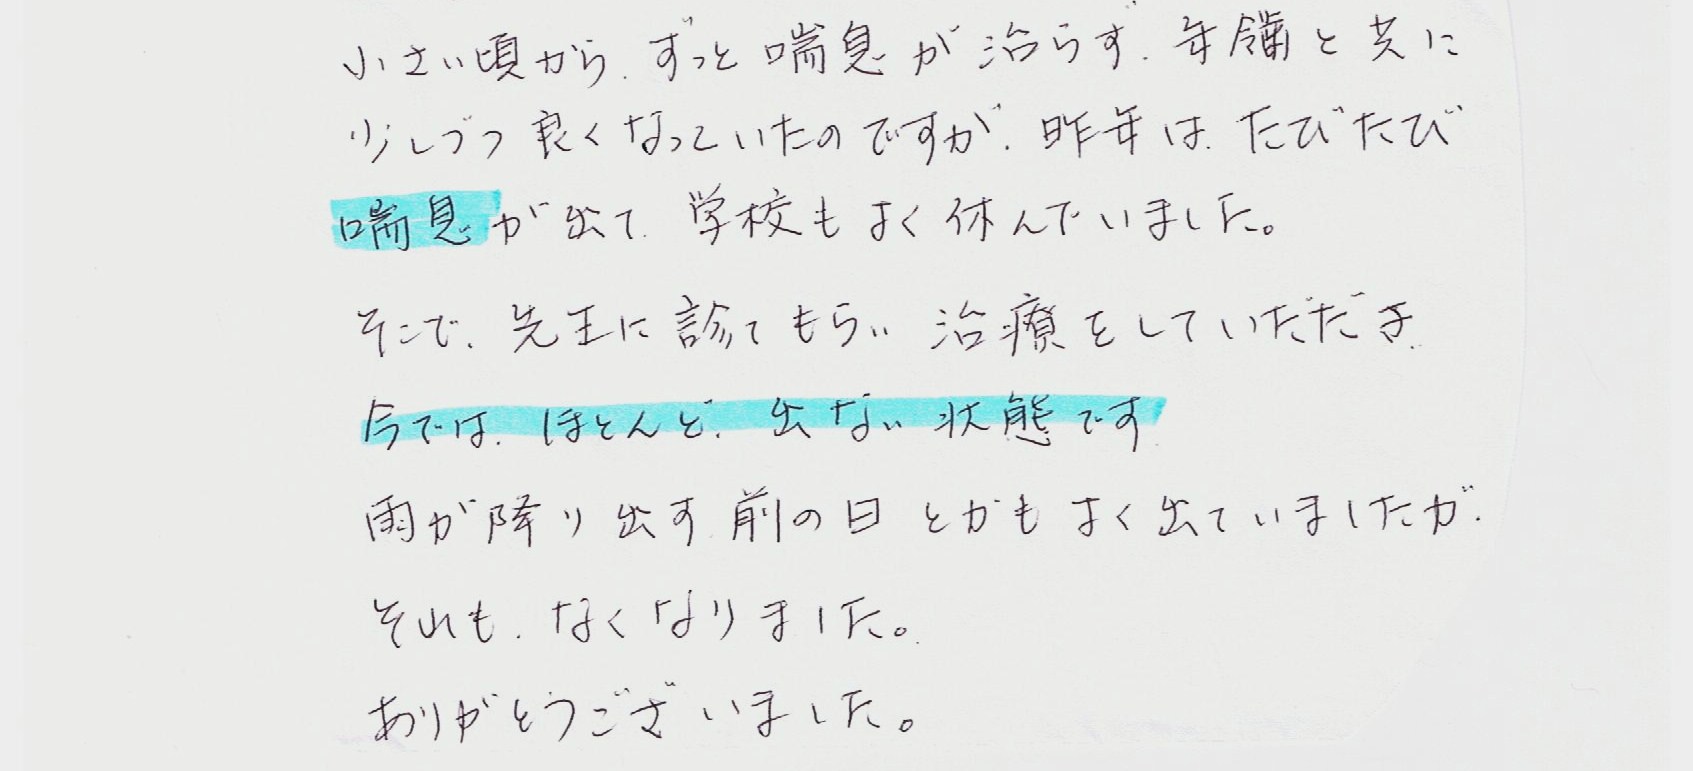 小さい頃から、ずっと喘息が治らず、年齢と共に
少しづつ良くなっていたのですが、昨年は、たびたび
喘息が出て、学校もよく休んでいました。
そこで、先生に診てもらい治療をしていただき、
今では、ほとんど、出ない状態です
雨が降り出す前の日とかもよく出ていましたが、
それも、なくなりました。
ありがとうございました。